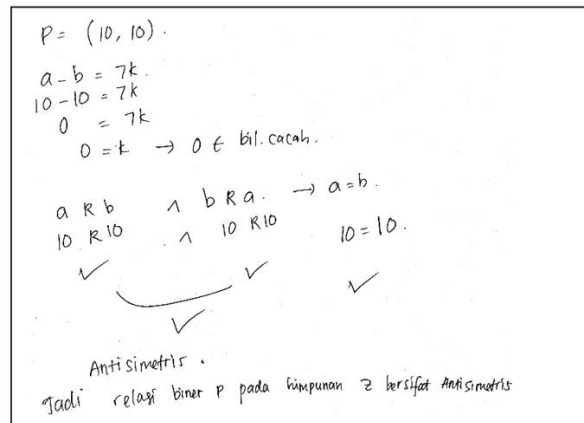 P = (10, 10).
a - b = 7k.
10 - 10 = 7k
0 = 7k
0 = k → 0 ∈ bil. cacah.
a R b ∧ b R a. → a = b.
10 R 10 . ∧ 10 R 10 10 = 10.
✓ ✓ ✓
✓
Antisimetris.
Jadi relasi biner P pada himpunan Z bersifat Antisimetris